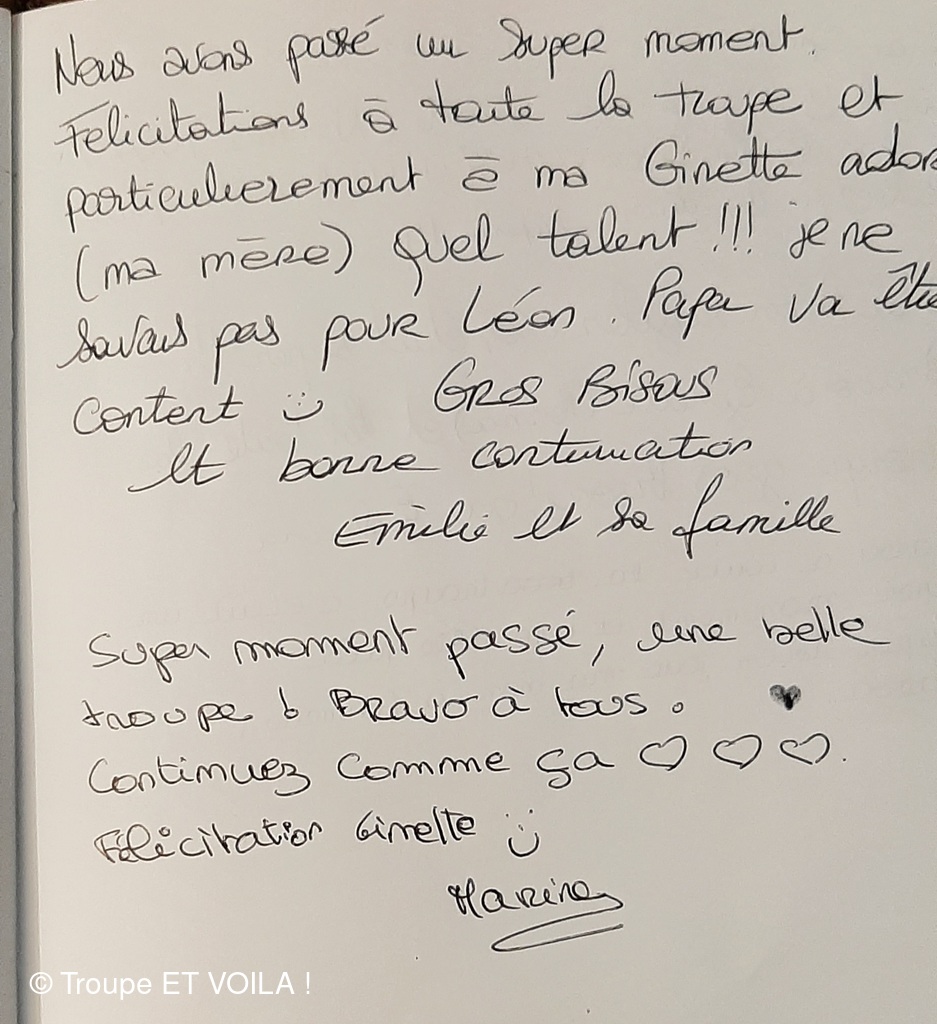 Nous avons passé un super moment.
Félicitations à toute la troupe et
particulièrement à ma Ginette
(ma mère) Quel talent !!! je ne
savais pas pour Léon. Papa va
content :)
Gros Bisous
et bonne continuation
Emilie et sa famille
Super moment passé, une belle
troupe ! Bravo à tous. ♥
Continuez comme ça ♡ ♡ ♡.
Félicitation Ginette :)
Marine
© Troupe ET VOILA !